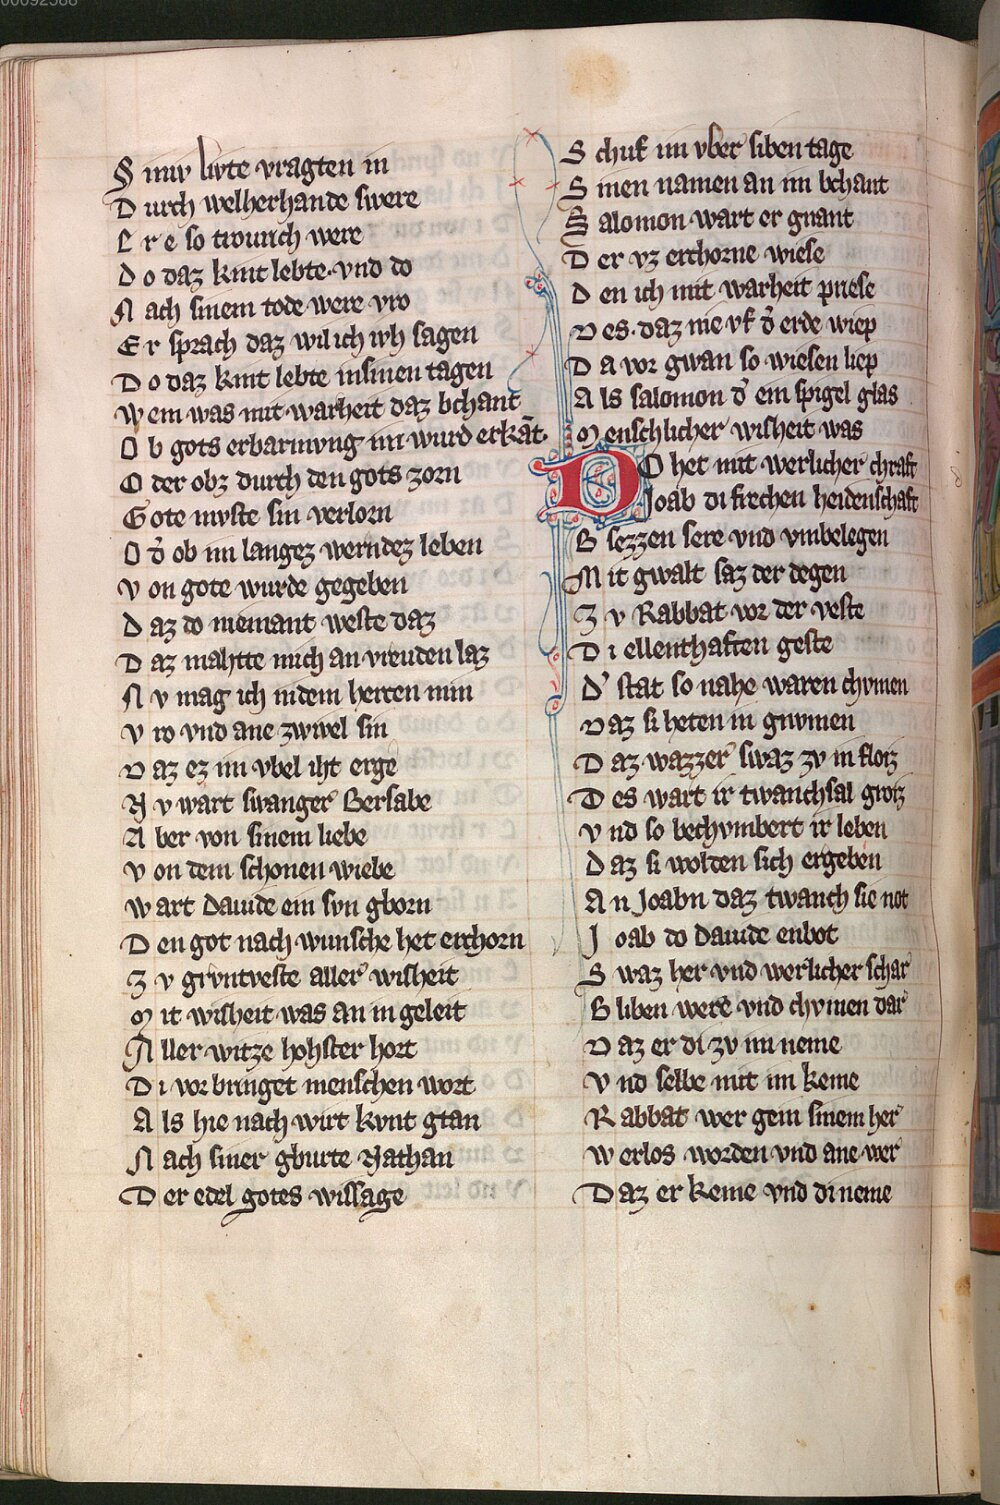 00092588
S iniv livte vragten in
D urch welherhande swere
E r e so trourich were
D o daz kint lebte·vnd do
N ach sinem tode were vro
E r sprach daz wil ich ivh sagen
D o daz kint lebte insinen tagen
W em was mit warheit daz bchant
O b gots erbarmvng im wurd erkāt·
O der obz durch den gots zorn
G ote mvste sin verlorn
O d̄ ob im langez werndez leben
V on gote wurde gegeben
D az do niemant weste daz
D az mahtte mich an vreuden laz
N v mag ich indem hercen min
V ro vnd ane zwivel sin
D az ez im vbel iht erge
N v wart swanger Bersabe
A ber von sinem liebe
V on dem schonen wiebe
W art Dauide ein svn gborn
D en got nach wunsche het erchorn
Z v grvntveste aller wisheit
M it wisheit was an in geleit
A ller witze hohster hort
D i vor bringet menschen wort
A ls hie nach wirt kvnt gtan
N ach siner gburte Nathan
D er edel gotes wissage
S chuf im vber siben tage
S inen namen an im bchant
S alomon wart er gnant
D er vz erchorne wiese
D en ich mit warheit priese
D es·daz nie vf d̄ erde wiep
D a vor gwan so wiesen liep
A ls salomon d' ein spigel glas
M enschlicher wisheit was
D O het mit werlicher chraft
Joab di frechen heidenschaft
B sezzen sere vnd vmbelegen
M it gwalt saz der degen
Z v Rabbat vor der veste
D i ellenthaften geste
D' stat so nahe waren chvmen
D az si heten in gnvmen
D az wazzer swaz zv in floz
D es wart ir twanchsal groz
V nd so bechvmbert ir leben
D az si wolden sich ergeben
A n Joabn daz twanch sie not
J oab do Dauide enbot
S waz her vnd werlicher schar
B liben were vnd chvmen dar
D az er di zv im neme
V nd selbe mit im keme
R abbat wer gein sinem her
W erlos worden vnd ane wer
D az er keme vnd di neme